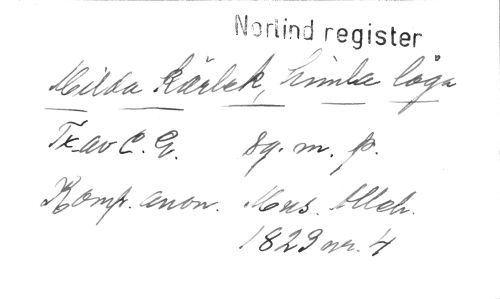 Norlind register
Milda Kärlek, himla låga
Tx. av C. G. Sg. m. p.
Komp. anon. Mus.
1823 nr. 4